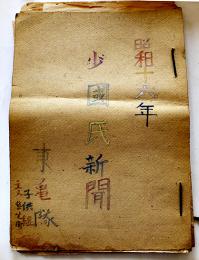 昭和十六年
少國民新聞
東亀隊
子供組